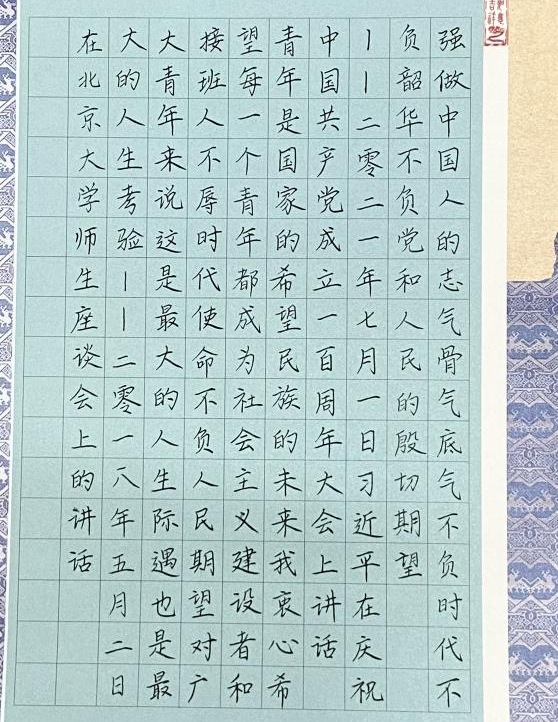 强做中国人的志气骨气底气不负时代不
负韶华不负党和人民的殷切期望
——二零二一年七月一日习近平在庆祝
中国共产党成立一百周年大会上讲话
青年是国家的希望民族的未来我衷心希
望每一个青年都成为社会主义建设者和
接班人不辱时代使命不负人民期望对广
大青年来说这是最大的人生际遇也是最
大的人生考验——二零一八年五月二日
在北京大学师生座谈会上的讲话